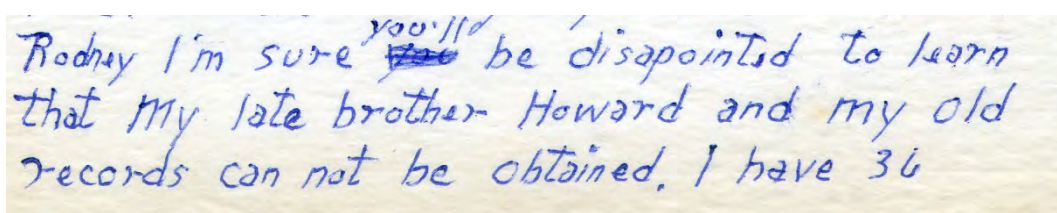 Rodney I'm sure you'll be disapointed to learn
that my late brother Howard and my old
records can not be obtained. I have 36